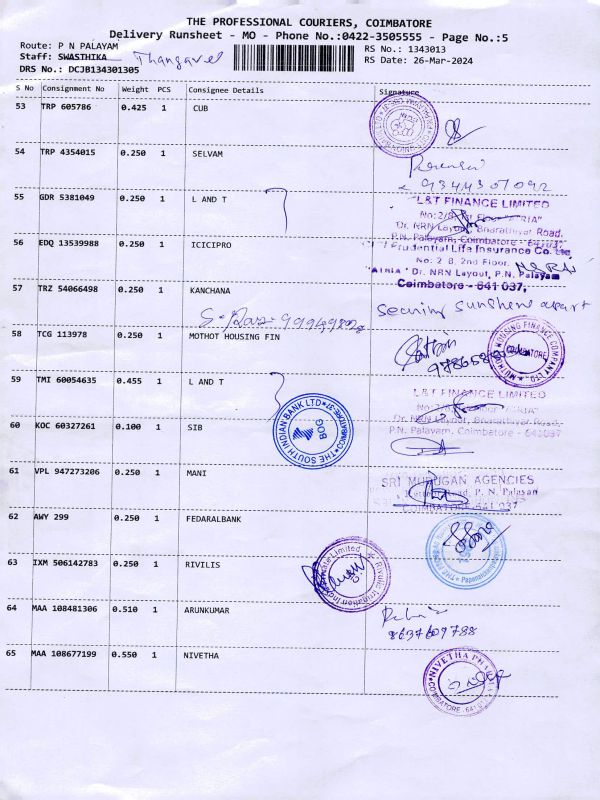 THE PROFESSIONAL COURIERS, COIMBATORE
Delivery Runsheet - MO - Phone No.:0422-3505555 - Page No.:5
Route: P N PALAYAM
RS No.: 1343013
Staff: SWASTHIKA Thangavel
RS Date: 26-Mar-2024
DRS No.: DCJB134301305
S No Consignment No Weight PCS Consignee Details Signature
53 TRP 605786 0.425 1 CUB
54 TRP 4354015 0.250 1 SELVAM
9344307092
55 GDR 5381049 0.250 1 L AND T
L&T FINANCE LIMITED
Dr. NRN Layout, Bharathiyar Road,
P.N. Palayam, Coimbatore - 641037
56 EDQ 13539988 0.250 1 ICICIPRO
Prudential Life Insurance Co. Ltd.
No: 2 B, 2nd Floor,
"AIRIA" Dr. NRN Layout, P.N. Palayam
Coimbatore - 641 037,
57 TRZ 54066498 0.250 1 KANCHANA
58 TCG 113978 0.250 1 MOTHOT HOUSING FIN
MUTHOOT HOUSING FINANCE COMPANY LTD. COIMBATORE
59 TMI 60054635 0.455 1 L AND T
L&T FINANCE LIMITED
Dr. NRN Layout, Bharathiyar Road,
P.N. Palayam, Coimbatore - 641037
60 KOC 60327261 0.100 1 SIB
THE SOUTH INDIAN BANK LTD. COIMBATORE-37 BOG
61 VPL 947273206 0.250 1 MANI
SRI MURUGAN AGENCIES
Road, P. N. Palayam
COIMBATORE-641 037
62 AWY 299 0.250 1 FEDARALBANK
63 IXM 506142783 0.250 1 RIVILIS
Rivulis Irrigation India Private Limited
64 MAA 108481306 0.510 1 ARUNKUMAR
8637609788
65 MAA 108677199 0.550 1 NIVETHA
NIVETHA PHARMA COIMBATORE - 641